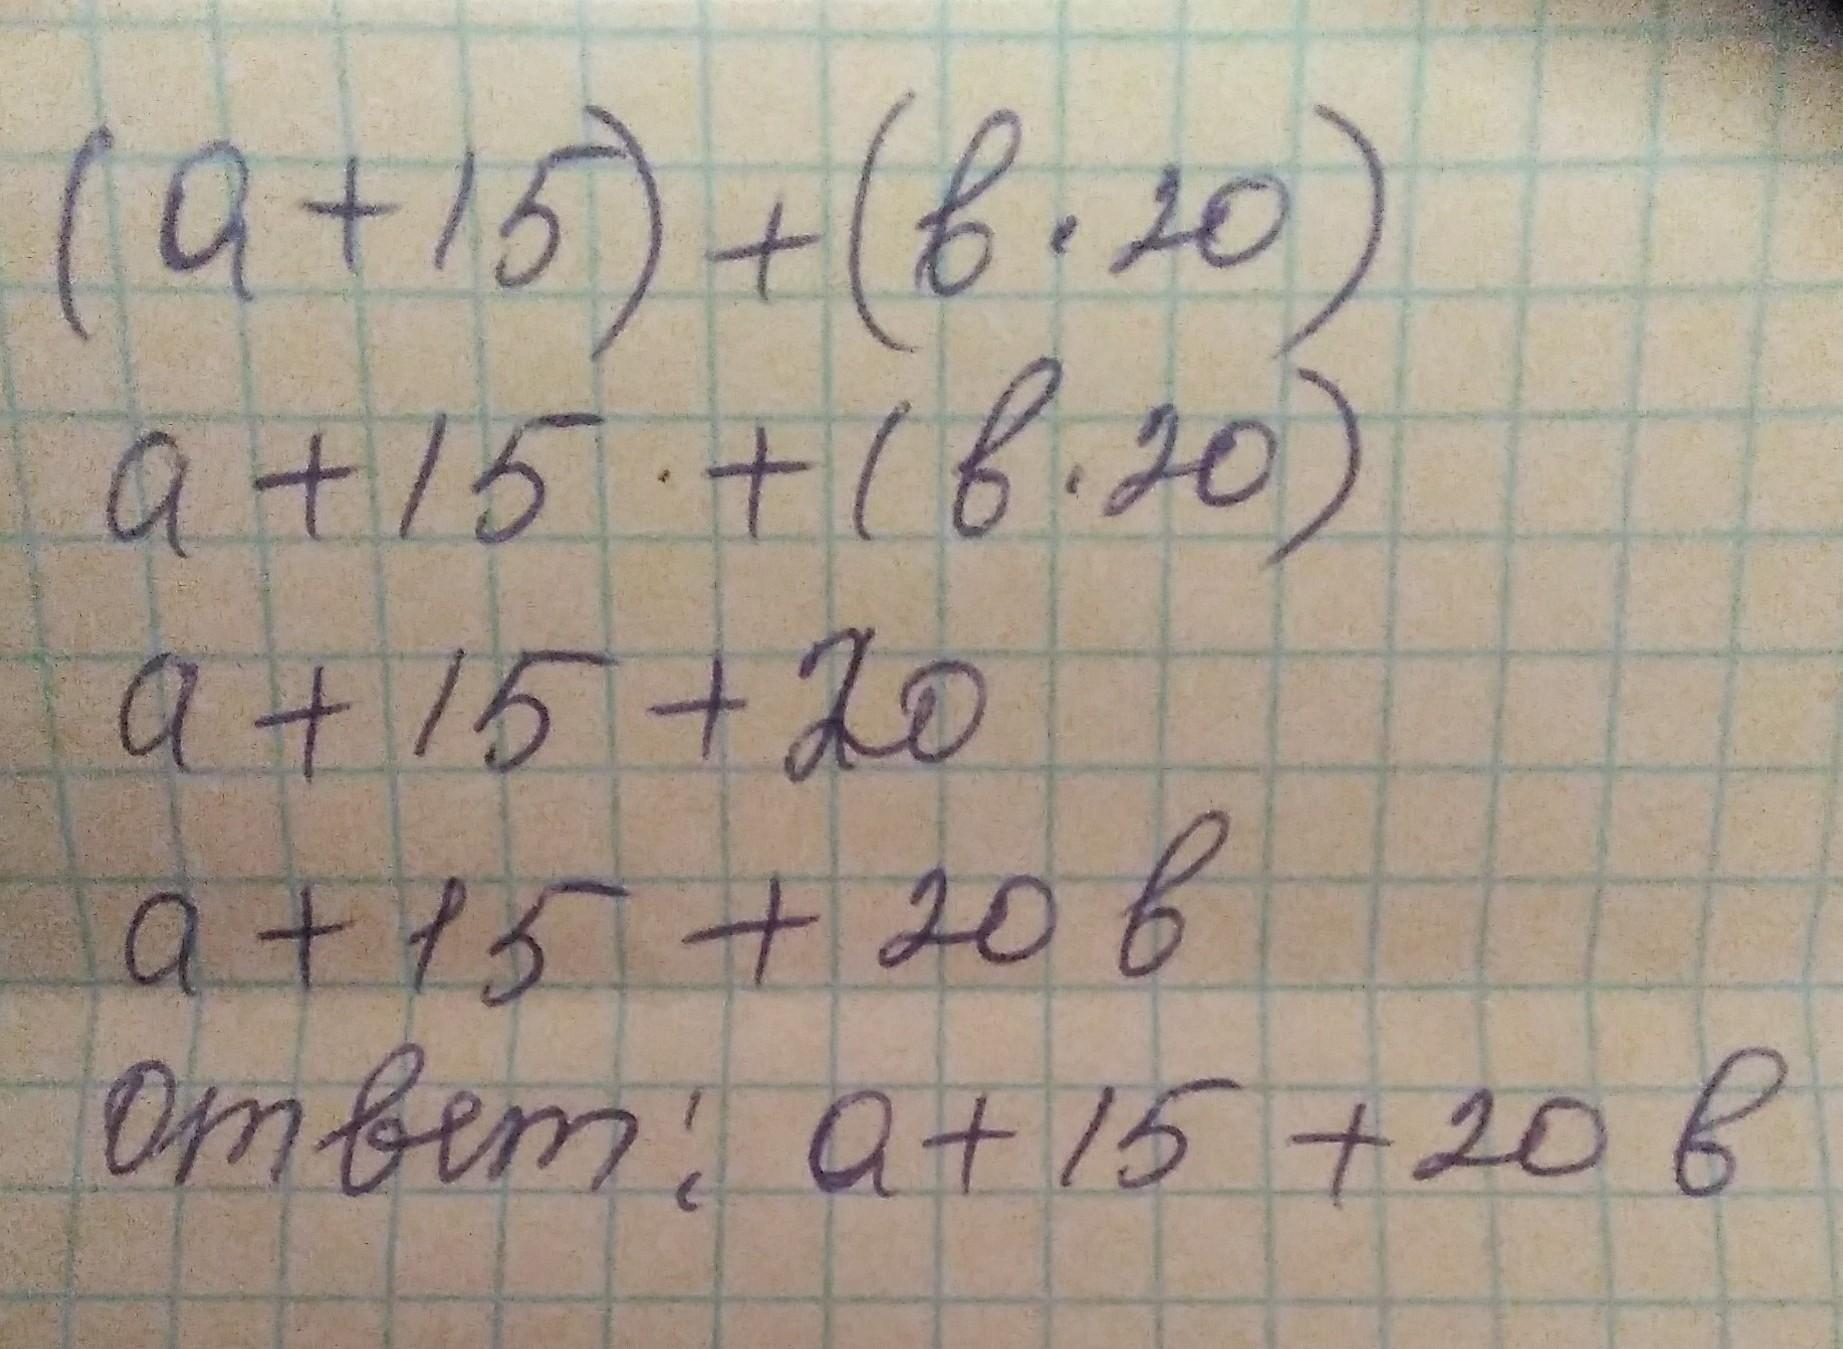 (a + 15) + (в · 20)
a + 15 · + (в · 20)
a + 15 + 20
a + 15 + 20 в
Ответ: a + 15 + 20 в